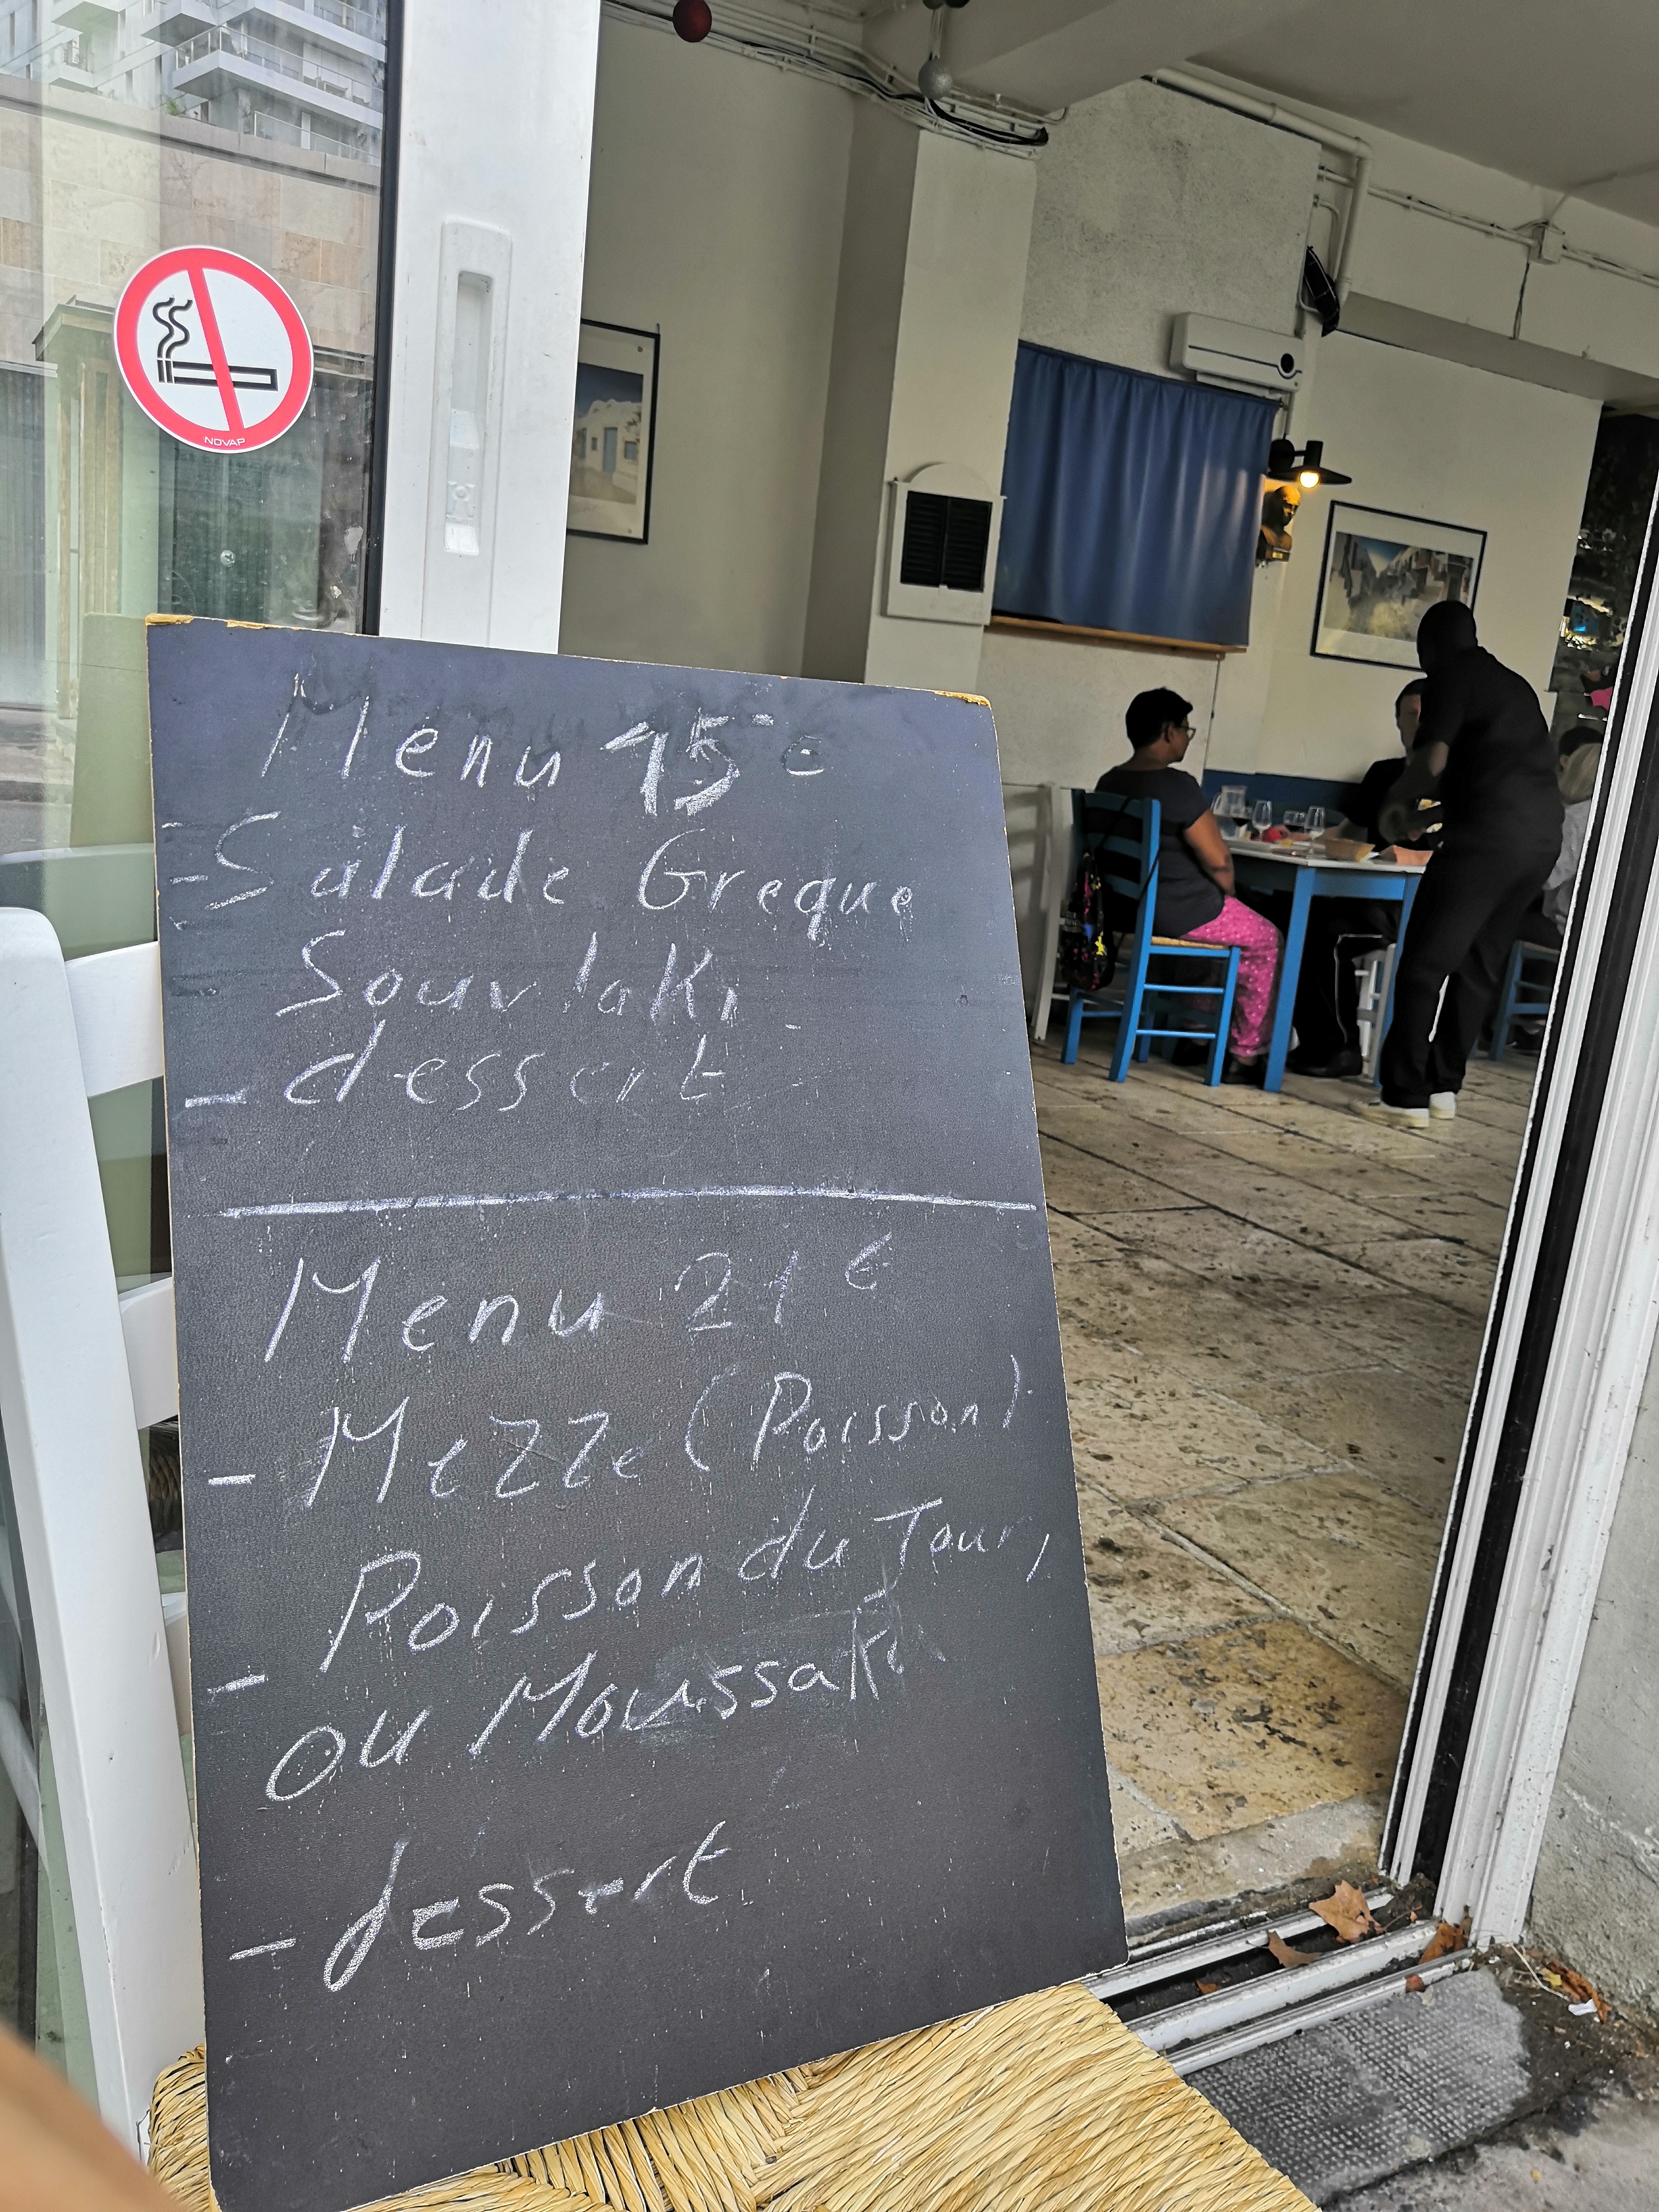 NOVAP
Menu 15 €
- Salade Greque
Souvlaki
- dessert
Menu 21 €
- Mezze (Poisson)
Poisson du Jour,
- ou Moussaka
- dessert